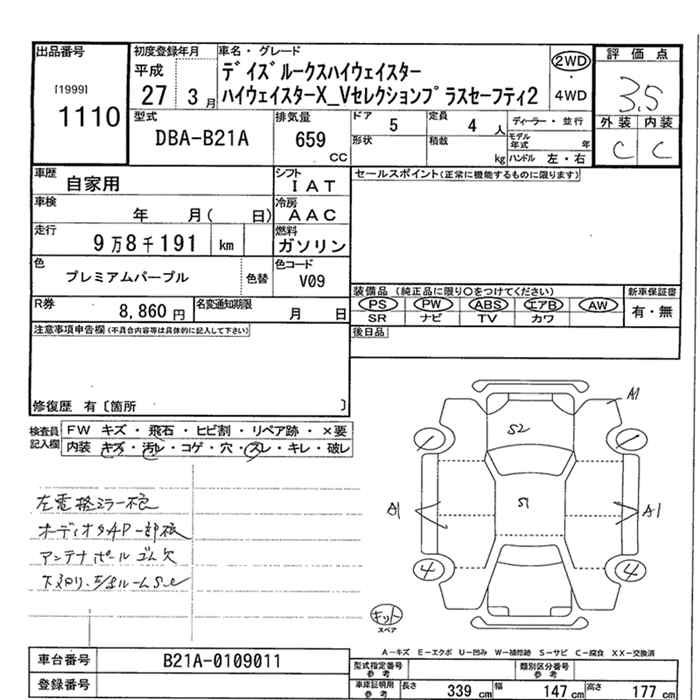 出品番号
[1999]
1110
初度登録年月
平成
27 3 月
車名・グレード
デイズルークスハイウェイスター
ハイウェイスターX_Vセレクションプラスセーフティ2
2WD
・
4WD
評価点
3.5
外装 内装
C C
型式
DBA-B21A
排気量
659
CC
ドア
5
定員
4 人
形状
積載
kg
ディーラー・並行
モデル年式 年
ハンドル 左・右
車歴
自家用
シフト
IAT
車検
年 月( 日)
冷房
AAC
走行
9万8千191 km
燃料
ガソリン
色
プレミアムパープル
色替
色コード
V09
R券
8,860 円
名変通知期限
月 日
セールスポイント(正常に機能するものに限ります)
装備品 (純正品に限り○をつけてください)
PS PW ABS エアB AW
SR ナビ TV カワ
新車保証書
有・無
後日品
注意事項申告欄(不具合内容等は具体的に記入して下さい)
修復歴 有〔箇所 〕
検査員記入欄
FW キズ・飛石・ヒビ割・リペア跡・×要
内装 キズ・汚レ・コゲ・穴・スレ・キレ・破レ
左電格ミラー
アンテナポールゴム欠
A1
S2
S1
A1
A1
4
4
キット
スペア
A-キズ E-エクボ U-凹み W-補修跡 S-サビ C-腐食 XX-交換済
車台番号 B21A-0109011
登録番号
型式指定番号 参考
類別区分番号 参考
車庫証明用 参考
長さ 339 cm 幅 147 cm 高さ 177 cm